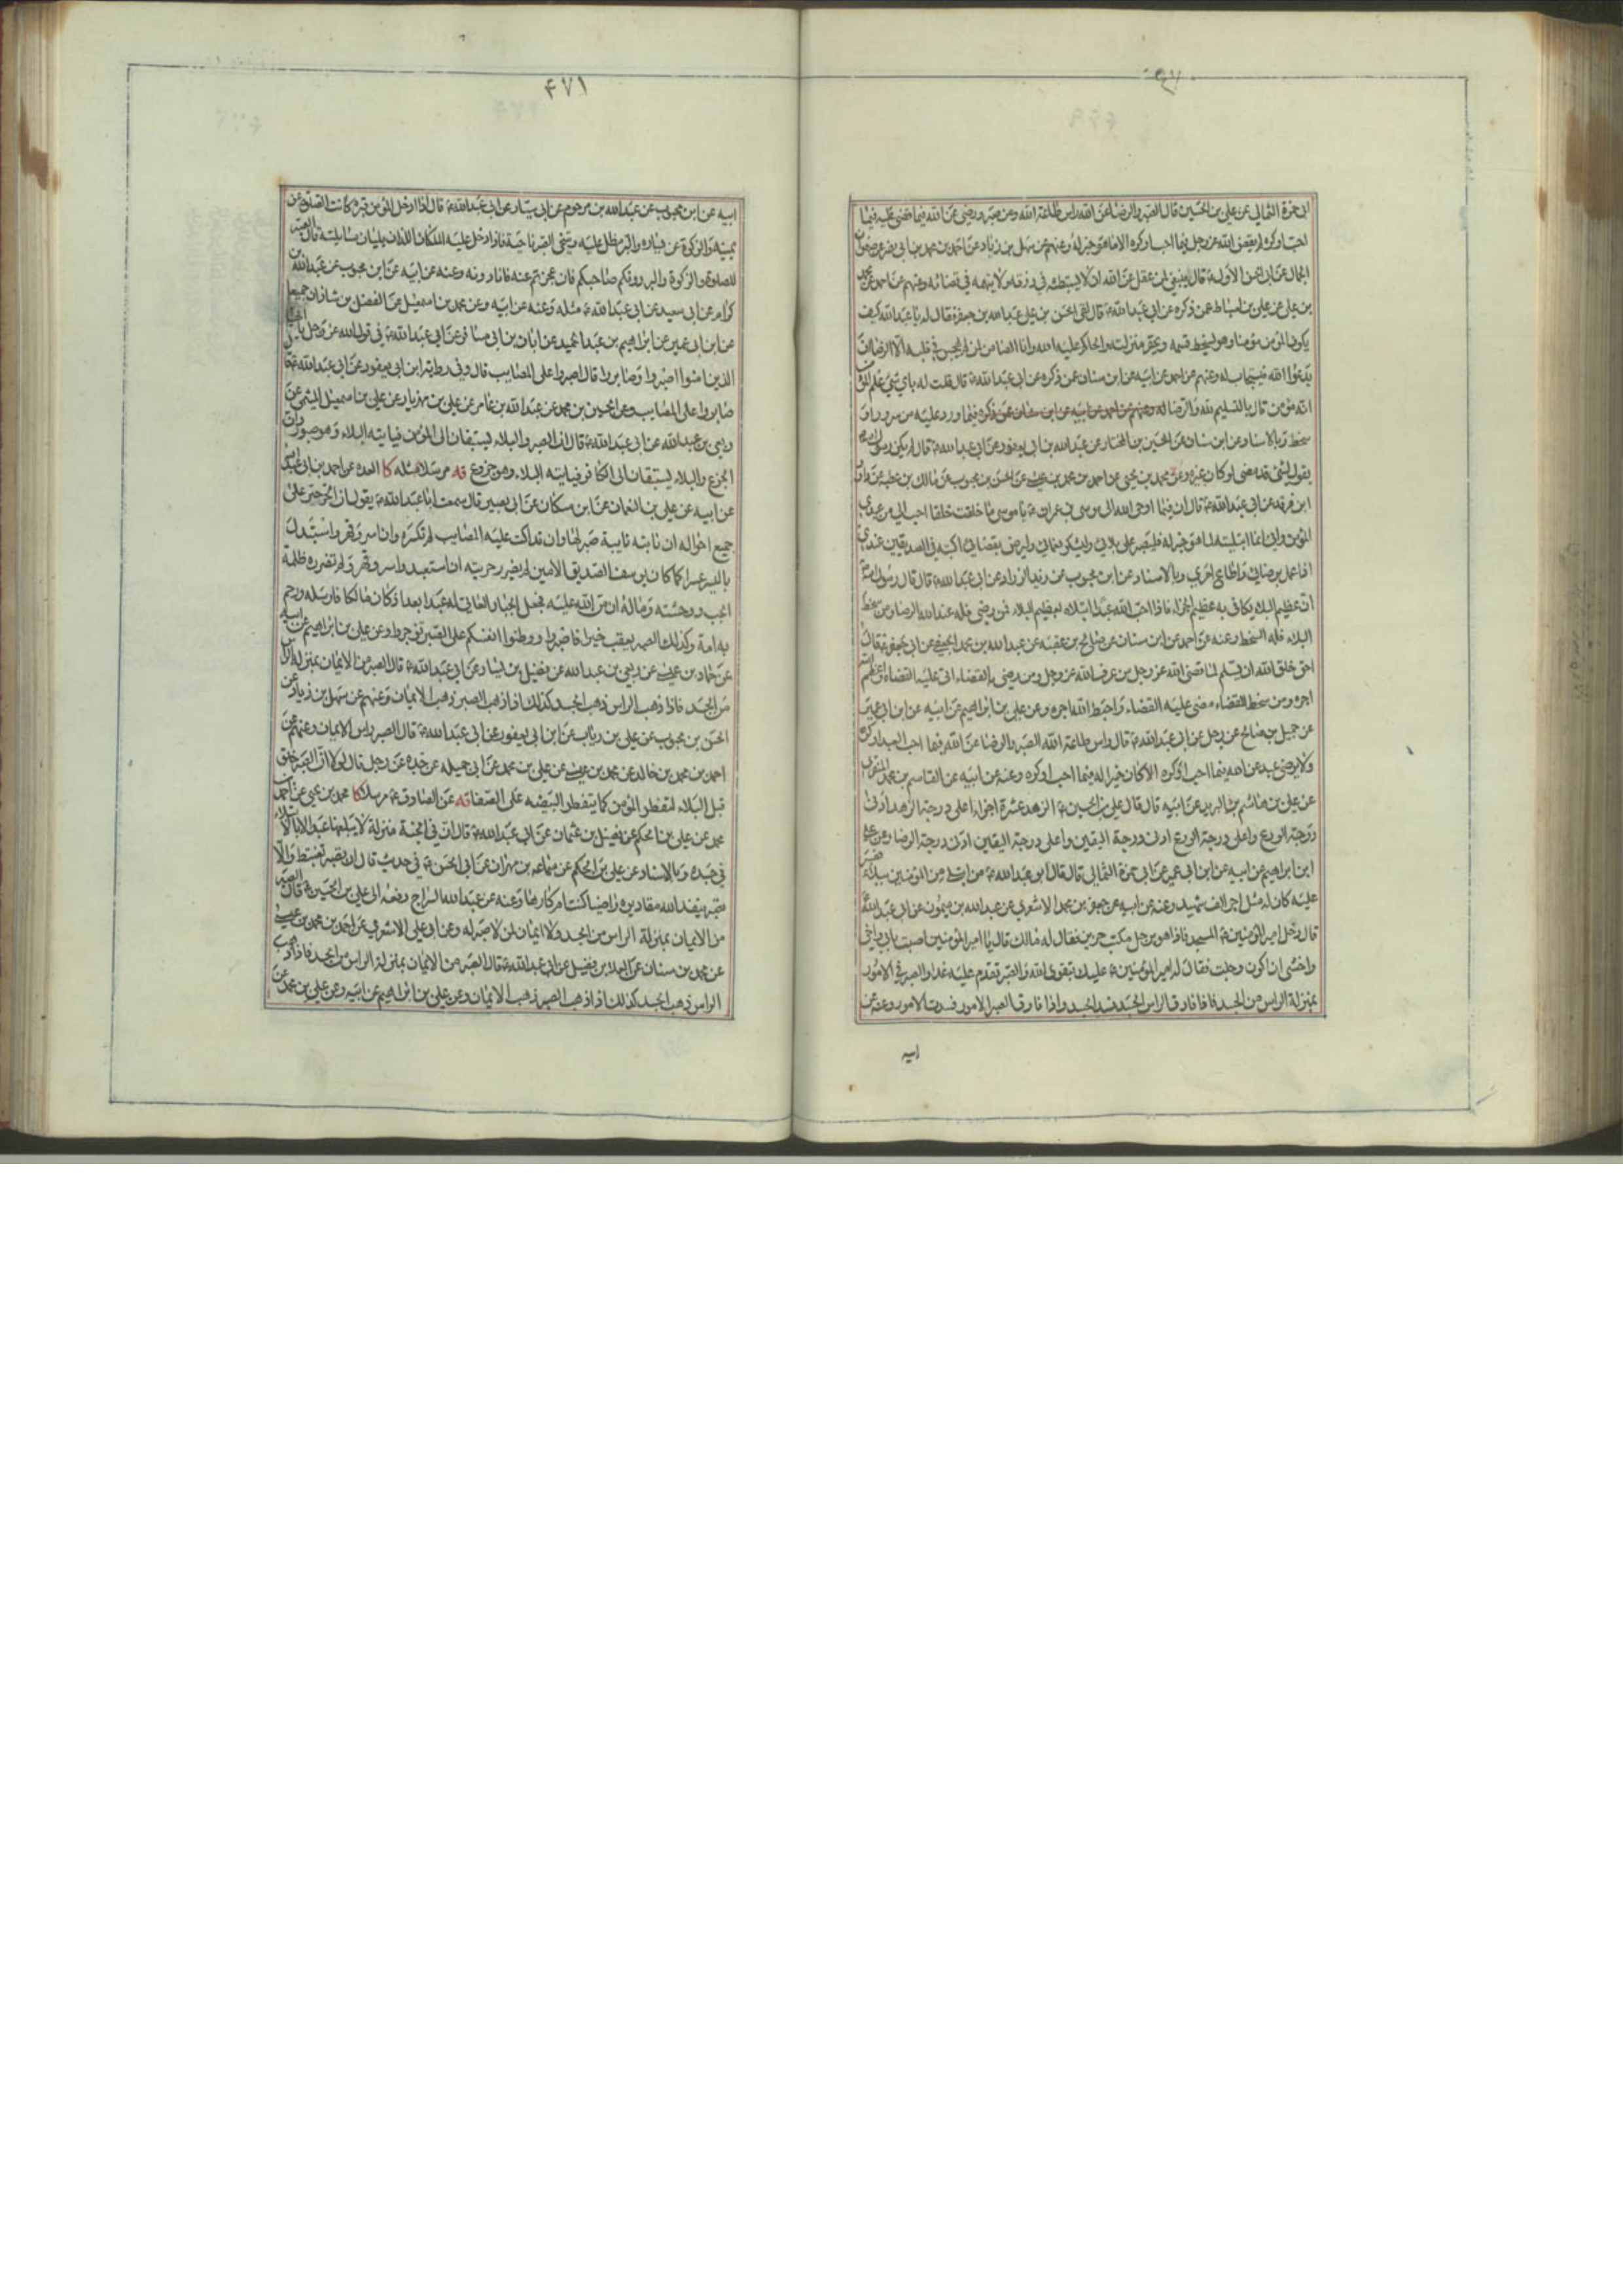 ابى حمزة الثمالى عن على بن الحسين ع قال الصبر والرضا عن الله راس طاعة الله ومن صبر ورضى عن الله فيما قضى عليه فيما
احب او كره لم يقض الله عز وجل فيما احب او كره الا ما هو خير له وعنهم عن سهل بن زياد عن احمد بن محمد بن ابى نصر عن صفوان
الجمال عن ابى الحسن الاول ع قال ينبغى لمن عقل عن الله ان لا يستبطئه فى رزقه ولا يتهمه فى قضائه وعنهم عن احمد عن محمد
بن على عن على بن اسباط عمن ذكره عن ابى عبد الله ع قال لقى الحسن بن على عبد الله بن جعفر فقال له يا عبد الله كيف
يكون المؤمن مؤمنا وهو يسخط قسمه ويحقر منزلته والحاكم عليه الله وانا الضامن لمن لم يهجس فى قلبه الا الرضا ان
يدعوا الله فيستجاب له وعنهم عن احمد عن ابيه عن ابن سنان عمن ذكره عن ابى عبد الله ع قال قلت له باى شئ علم المؤمن
انه مؤمن قال بالتسليم لله والرضا فيما ورد عليه من سرور او
سخط وبالاسناد عن ابن سنان عن الحسين بن المختار عن عبد الله بن ابى يعفور عن ابى عبد الله ع قال لم يكن رسول الله
يقول لشئ قد مضى لو كان غيره وعن محمد بن يحيى عن احمد بن محمد بن عيسى عن الحسن بن محبوب عن مالك بن عطيه عن داود
ابن فرقد عن ابى عبد الله ع قال ان فيما اوحى الله الى موسى بن عمران ع يا موسى ما خلقت خلقا احب الى من عبدى
المؤمن وانى انما ابتليته لما هو خير له فليصبر على بلائى وليشكر نعمائى وليرض بقضائى اكتبه فى الصديقين عندى
اذا عمل برضائى واطاع امرى وبالاسناد عن ابن محبوب عن زيد الزراد عن ابى عبد الله ع قال قال رسول الله
ان عظيم البلاء يكافى به عظيم الجزاء فاذا احب الله عبدا ابتلاه بعظيم البلاء فمن رضى فله عند الله الرضا ومن سخط
البلاء فله السخط وعنه عن احمد عن ابن سنان عن صالح بن عقبه عن عبد الله بن محمد الجعفى عن ابى جعفر ع قال
احق خلق الله ان يسلم لما قضى الله عز وجل من عرف الله عز وجل ومن رضى بالقضاء اتى عليه القضاء وعظم الله
اجره ومن سخط القضاء مضى عليه القضاء واحبط الله اجره وعن على بن ابراهيم عن ابيه عن ابن ابى عمير
عن جميل بن صالح عن رجل عن ابى عبد الله ع قال راس طاعة الله الصبر والرضا عن الله فيما احب العبد او كره
ولا يرضى عبد عن الله فيما احب او كره الا كان خيرا له فيما احب او كره وعنه عن ابيه عن القاسم بن محمد المنقرى
عن على بن هاشم بن البريد عن ابيه قال قال على بن الحسين ع الزهد عشرة اجزاء اعلى درجة الزهد ادنى
درجة الورع واعلى درجة الورع ادنى درجة اليقين واعلى درجة اليقين ادنى درجة الرضا وعن على
ابن ابراهيم عن ابيه عن ابن ابى عمير عن ابى حمزة الثمالى قال قال ابو عبد الله ع من ابتلى من المؤمنين ببلاء فصبر
عليه كان له مثل اجر الف شهيد وعنه عن ابيه عن جعفر بن محمد الاشعرى عن عبد الله بن ميمون عن ابى عبد الله
قال دخل امير المؤمنين ع المسجد فاذا هو برجل مكتئب حزين فقال له مالك قال يا امير المؤمنين اصبت بابى واخى
واخشى ان اكون وجلت فقال له امير المؤمنين ع عليك بتقوى الله والصبر تقدم عليه غدا والصبر فى الامور
بمنزلة الراس من الجسد فاذا فارق الراس الجسد فسد الجسد واذا فارق الصبر الامور فسدت الامور وعنه عن
ابيه
۴۷۱
ابيه عن ابن محبوب عن عبد الله بن مرحوم عن ابى سيار عن ابى عبد الله ع قال اذا دخل المؤمن قبره كانت الصلوة عن
يمينه والزكوة عن يساره والبر مظل عليه ويتنحى الصبر ناحية فاذا دخل عليه الملكان اللذان يليان مسائلته قال الصبر
للصلوة والزكوة والبر دونكم صاحبكم فان عجزتم عنه فانا دونه وعنه عن ابيه عن ابن محبوب عن عبد الله بن
كرام عن ابى سعيد عن ابى عبد الله ع مثله وعنه عن ابيه وعن محمد بن اسمعيل عن الفضل بن شاذان جميعا
عن ابن ابى عمير عن ابراهيم بن عبد الحميد عن ابان بن ابى مسافر عن ابى عبد الله ع فى قول الله عز وجل يا ايها
الذين امنوا اصبروا وصابروا قال اصبروا على المصايب قال وفى رواية ابن ابى يعفور عن ابى عبد الله ع قال
صابروا على المصايب وعن الحسين بن محمد عن عبد الله بن عامر عن على بن مهزيار عن على بن اسمعيل الميثمى عن
ربعى بن عبد الله عن ابى عبد الله ع قال ان الصبر والبلاء يستبقان الى المؤمن فياتيه البلاء وهو صبور وان
الجزع والبلاء يستبقان الى الكافر فياتيه البلاء وهو جزوع قه مرسلا مثله كا العدة عن احمد بن ابى عبد الله
عن ابيه عن على بن النعمان عن ابن مسكان عن ابى بصير قال سمعت ابا عبد الله ع يقول ان الحر حر على
جميع احواله ان نابته نايبة صبر لها وان تداكت عليه المصايب لم تكسره وان اسر وقهر واستبدل
باليسر عسرا كما كان يوسف الصديق الامين لم يضرر حريته ان استعبد واسر وقهر ولم تضرره ظلمة
الجب ووحشته وما ناله ان من الله عليه فجعل الجبار العاتى له عبدا بعد اذ كان مالكا فارسله ورحم
به امة وكذلك الصبر يعقب خيرا فاصبروا ووطنوا انفسكم على الصبر توجروا وعن على بن ابراهيم عن ابيه
عن حماد بن عيسى عن ربعى بن عبد الله عن فضيل بن يسار عن ابى عبد الله ع قال الصبر من الايمان بمنزلة الراس
من الجسد فاذا ذهب الراس ذهب الجسد كذلك اذا ذهب الصبر ذهب الايمان وعنهم عن سهل بن زياد عن
الحسن بن محبوب عن على بن رئاب عن ابن ابى يعفور عن ابى عبد الله ع قال الصبر راس الايمان وعنهم عن
احمد بن محمد بن خالد عن محمد بن عيسى عن على بن محمد عن ابى جميله عن جده عن رجل قال لولا ان الصبر خلق
قبل البلاء لتفطر المؤمن كما يتفطر البيضه على الصفا قه عن الصادق ع مرسلا كا محمد بن يحيى عن احمد بن
محمد عن على بن الحكم عن فضيل بن عثمان عن ابى عبد الله ع قال ان فى الجنة منزلة لا يبلغها عبد الا بالابتلاء
فى جسده وبالاسناد عن على بن الحكم عن سماعه بن مهران عن ابى الحسن ع فى حديث قال ان تصبر تغتبط والا
تصبر ينفذ الله مقاديره راضيا كنت ام كارها وعنه عن عبد الله السراج رفعه الى على بن الحسين ع قال الصبر
من الايمان بمنزلة الراس من الجسد ولا ايمان لمن لا صبر له وعن ابى على الاشعرى عن احمد بن محمد بن عيسى
عن محمد بن سنان عن العلاء بن فضيل عن ابى عبد الله ع قال الصبر من الايمان بمنزلة الراس من الجسد فاذا ذهب
الراس ذهب الجسد كذلك اذا ذهب الصبر ذهب الايمان وعن على بن ابراهيم عن ابيه وعن على بن محمد عن